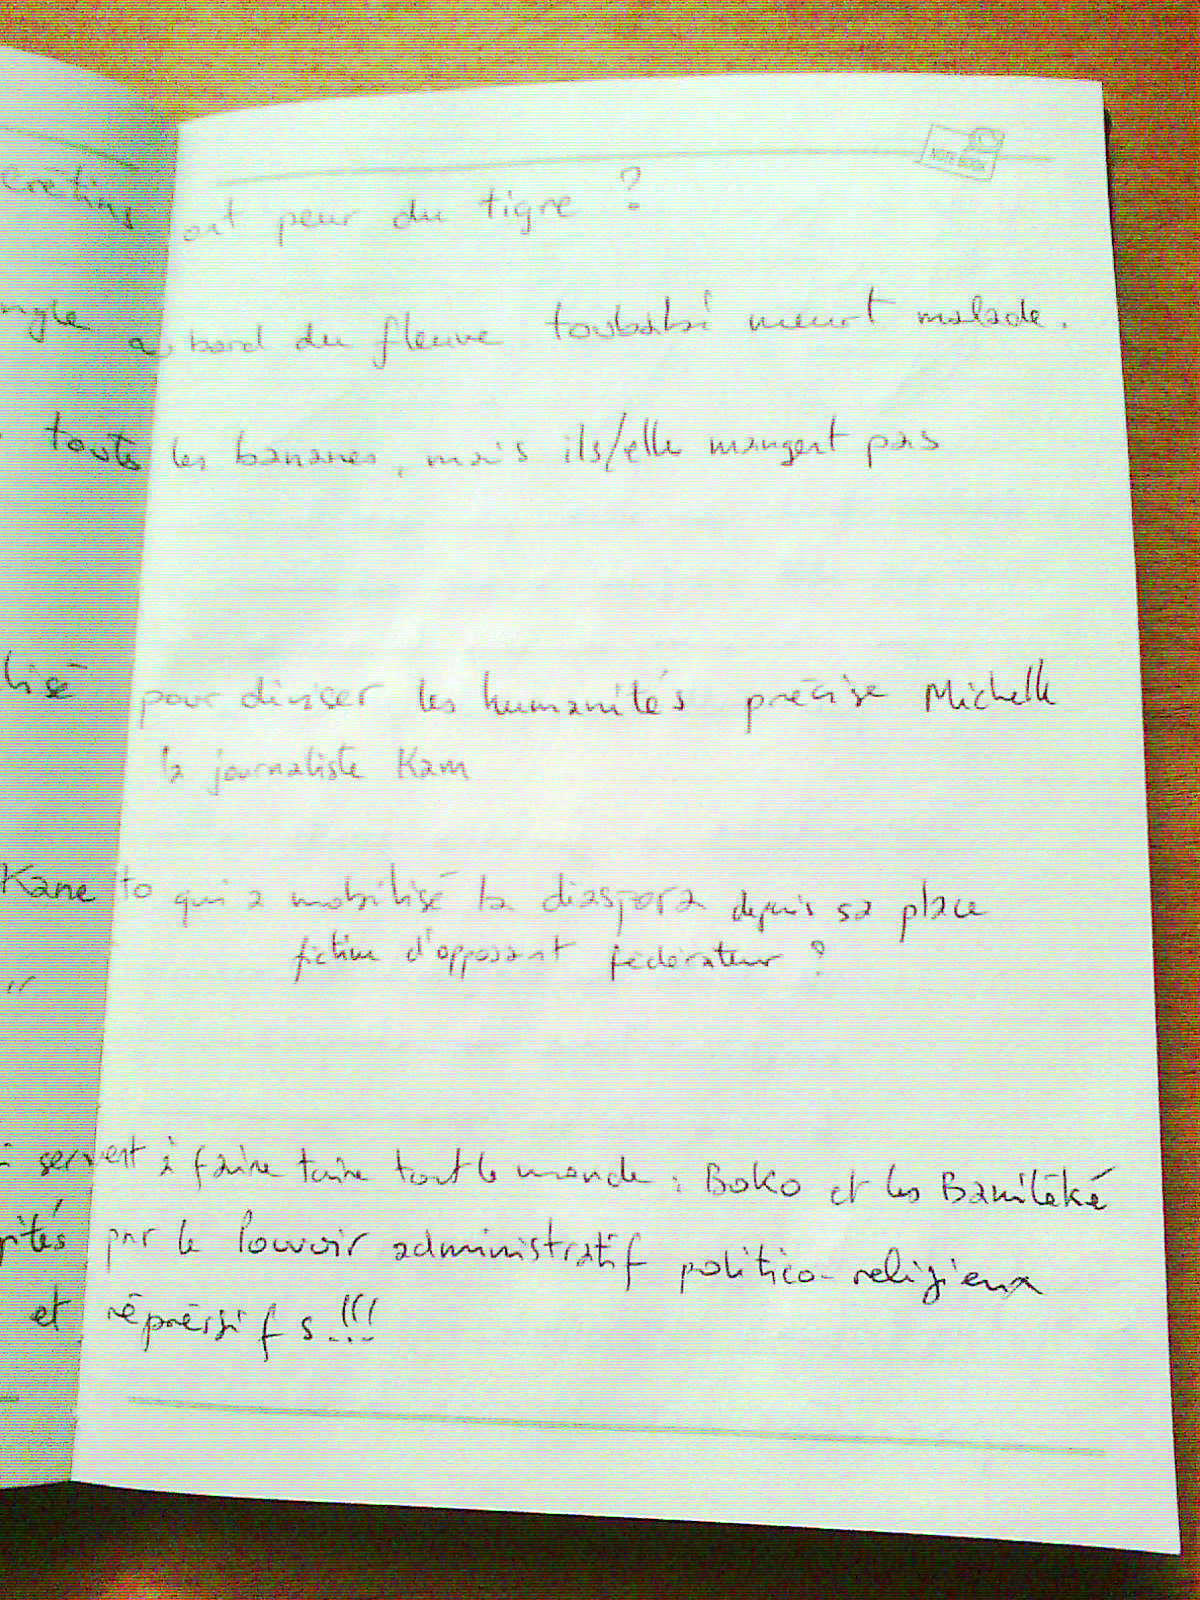 NOTE BOOK
ont peur du tigre ?
au bord du fleuve toubabi meurt malade.
toutes les bananes, mais ils/elle mangent pas
pour diviser les humanités précise Michelle
la journaliste Kam
Kane to qui a mobilisé la diaspora depuis sa place
fictive d'opposant fédérateur ?
servent à faire taire tout le monde : Boko et les Bamiléké
par le Pouvoir administratif politico-religieux
et répressifs !!!